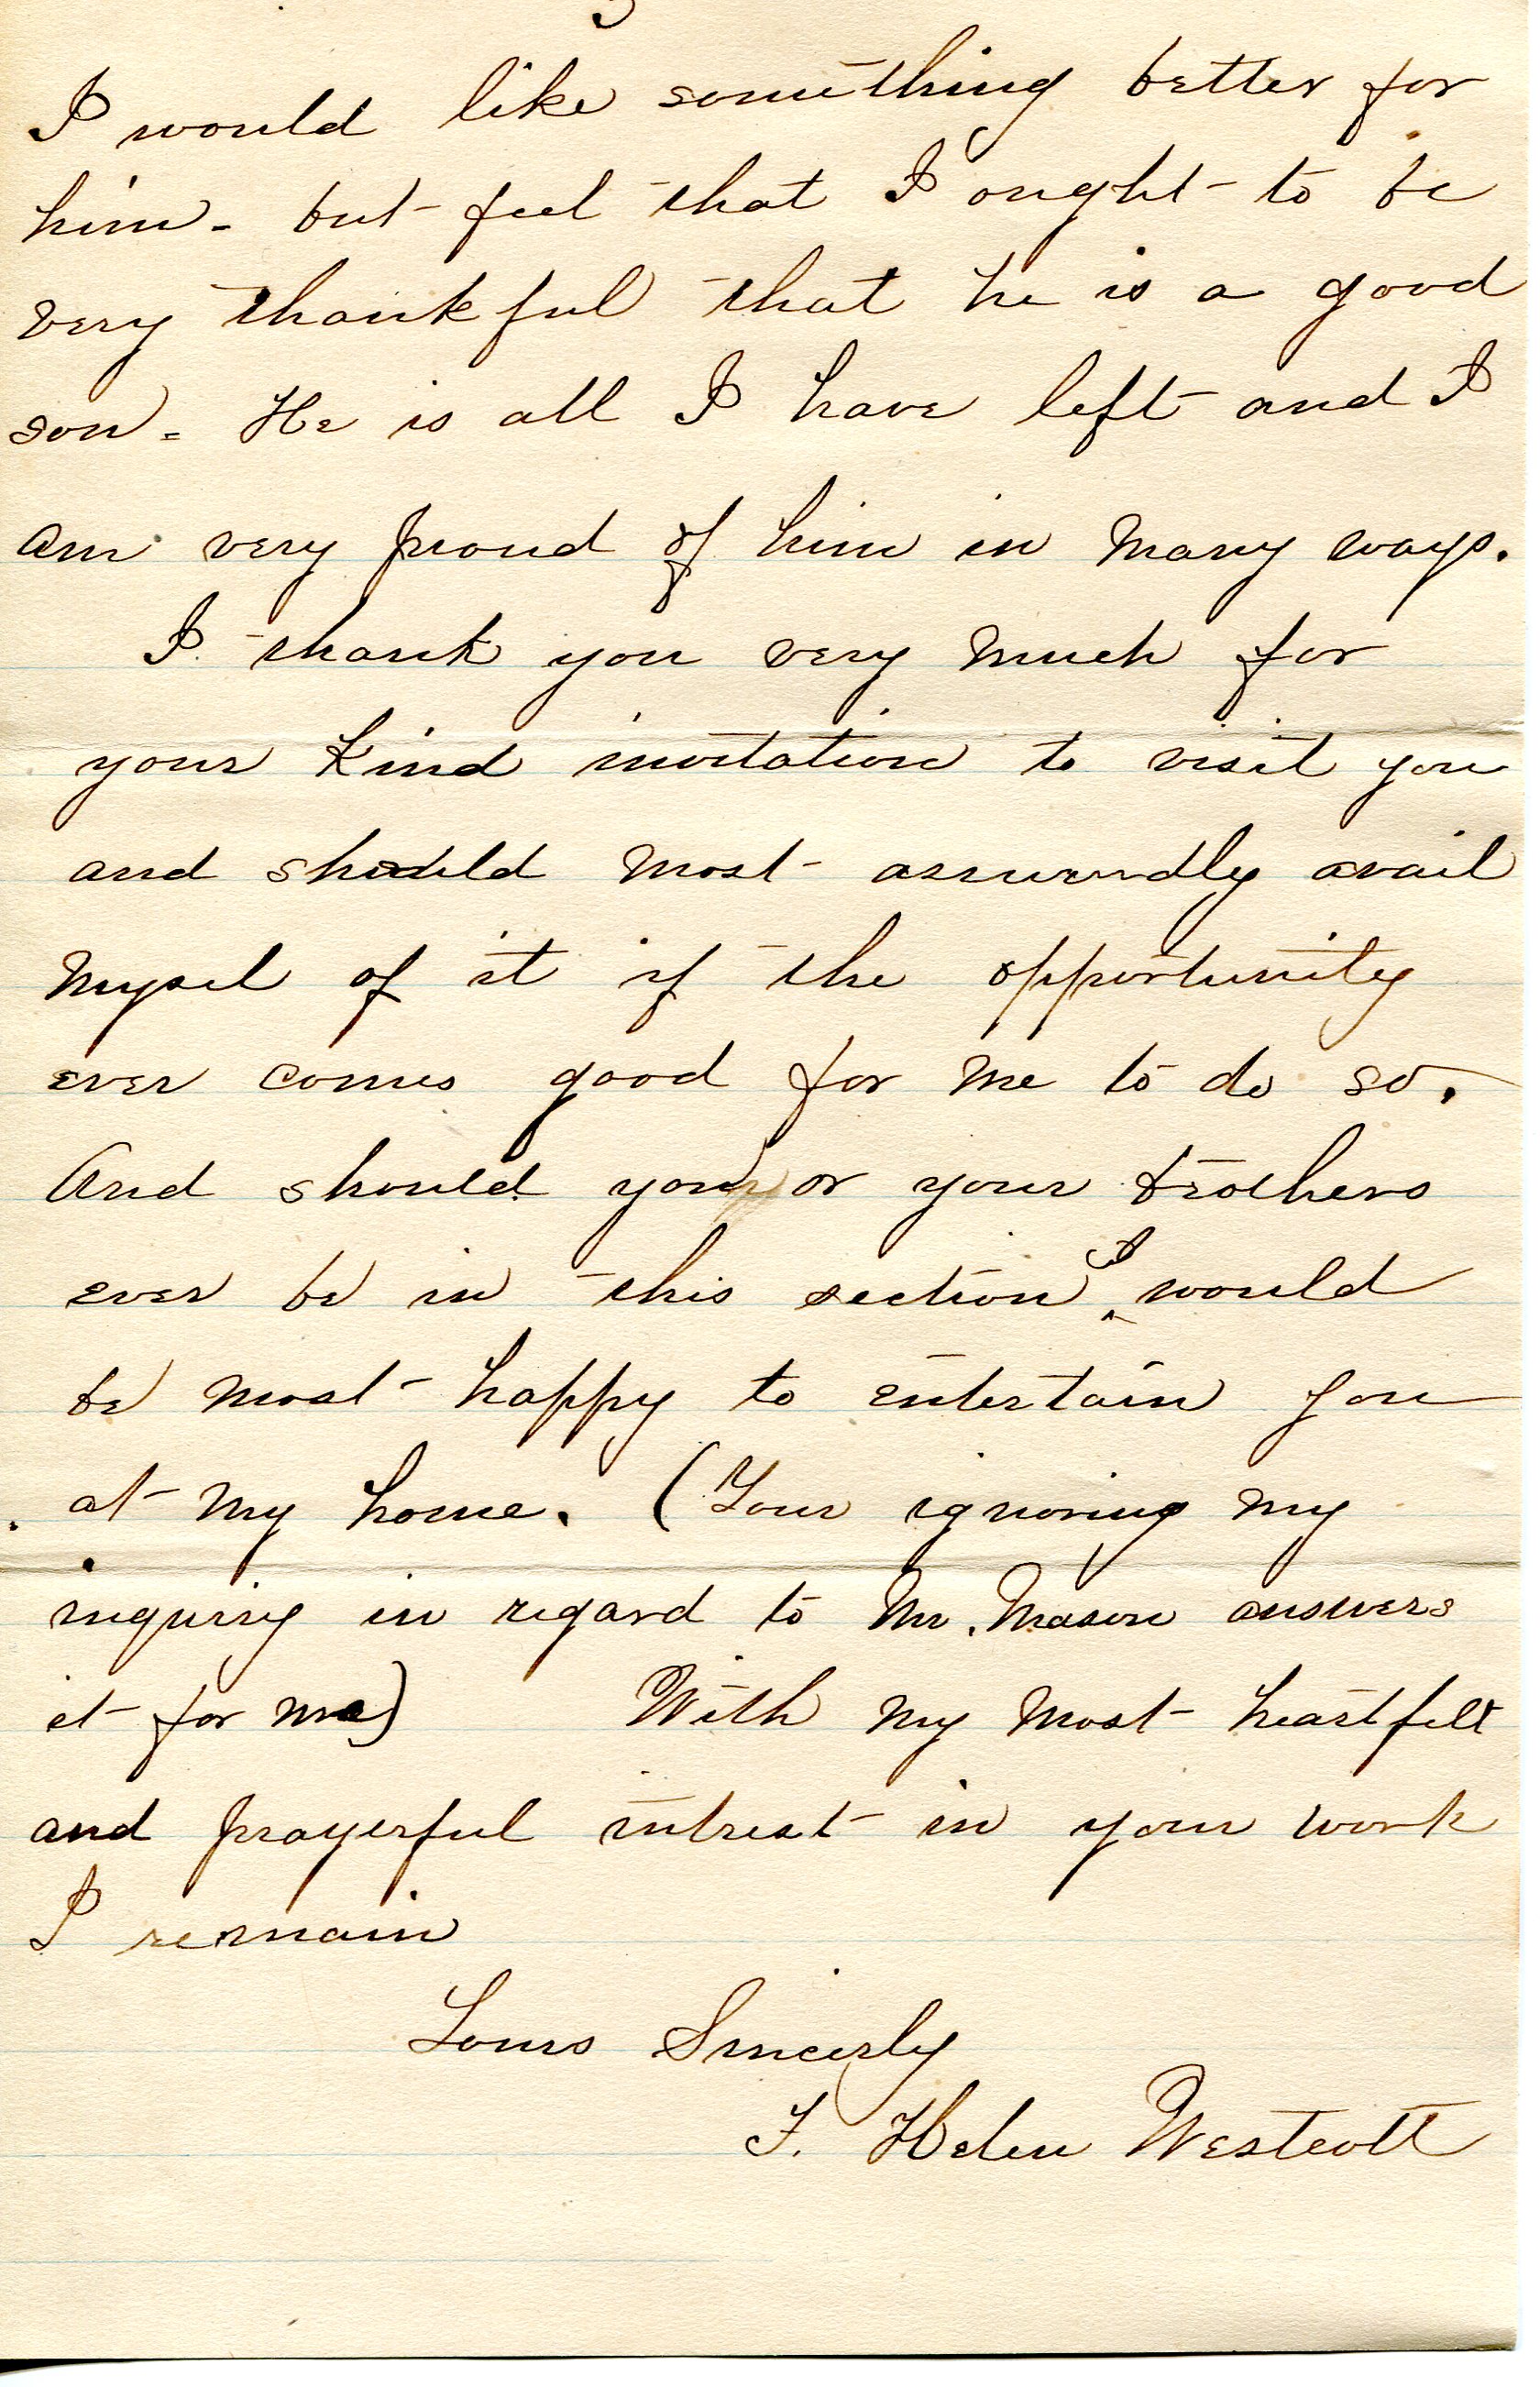 I would like something better for
him - but feel that I ought to be
very thankful that he is a good
son - He is all I have left and I
am very proud of him in many ways.
I thank you very much for
your kind invitation to visit you
and should most assuredly avail
mysel of it if the opportunity
ever comes good for me to do so.
And should you or your brothers
ever be in this section I would
be most happy to entertain you
at my home. (Your ignoring my
inquiry in regard to Mr. Mason answers
it for me) With my most heartfelt
and prayerful intrest in your work
I remain
Yours Sincerly
F. Helen Westcott